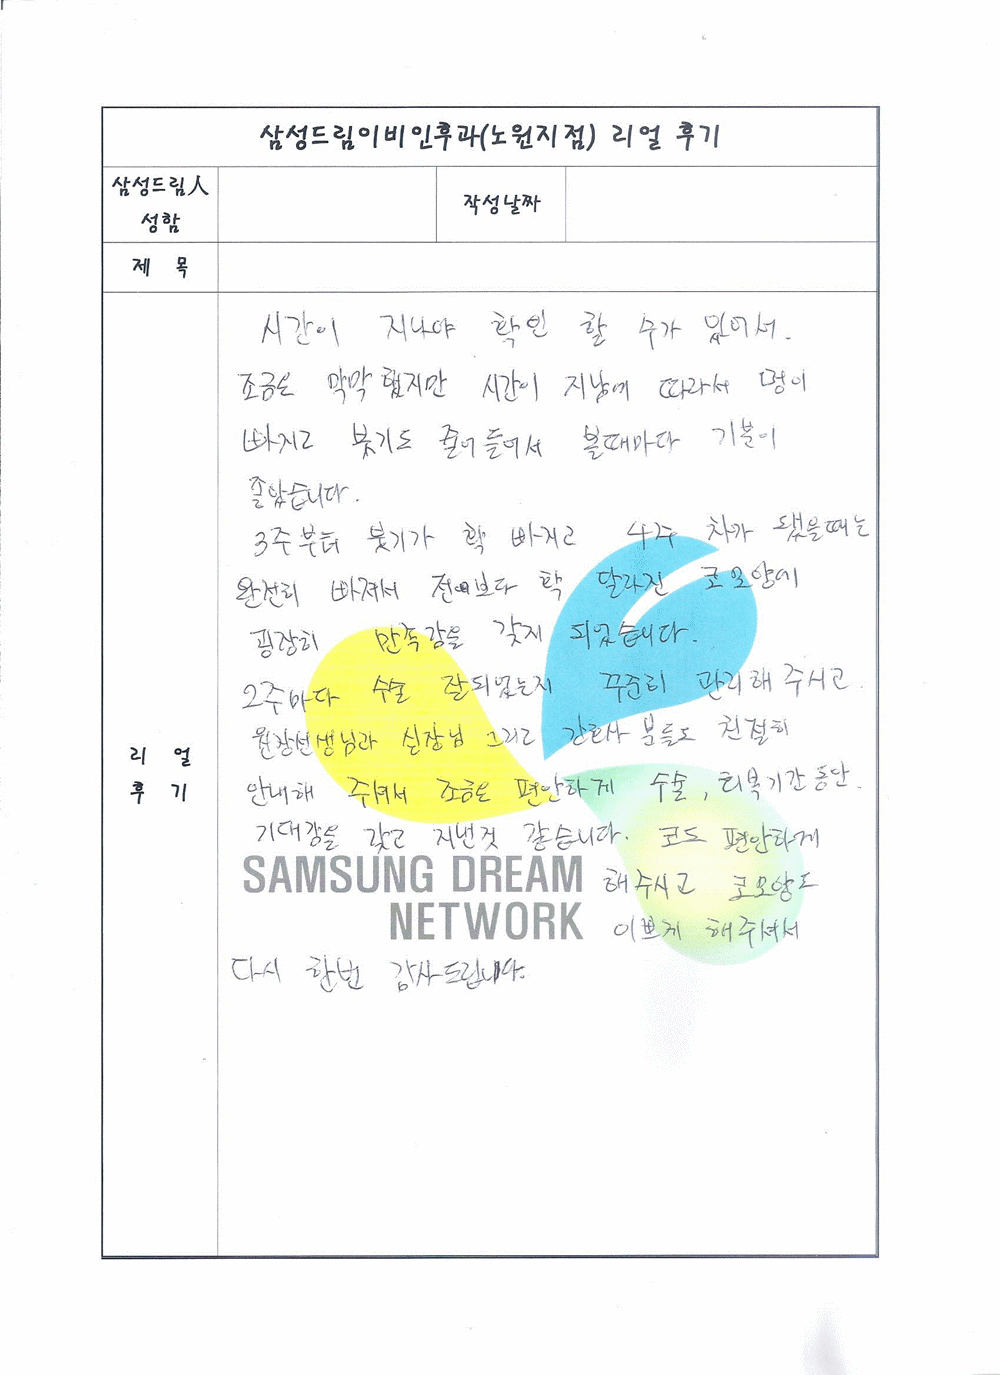 삼성드림이비인후과(노원지점) 리얼 후기
삼성드림人
성함
작성날짜
제 목
시간이 지나야 확인 할 수가 있어서.
조금은 막막했지만 시간이 지남에 따라서 멍이
빠지고 붓기도 줄어들어서 볼때마다 기분이
좋았습니다.
3주부터 붓기가 확 빠지고 4주 차가 됐을때는
완전히 빠져서 전에보다 확 달라진 코모양에
굉장히 만족감을 갖게 되었습니다.
2주마다 수술 잘되었는지 꾸준히 관리해 주시고.
원장선생님과 실장님 그리고 간호사 분들도 친절히
안내해 주셔서 조금은 편안하게 수술, 회복기간동안.
기대감을 갖고 지낸것 같습니다. 코도 편안하게
해주시고 코모양도
이쁘게 해주셔서
다시 한번 감사드립니다.
리 얼
후 기
SAMSUNG DREAM
NETWORK